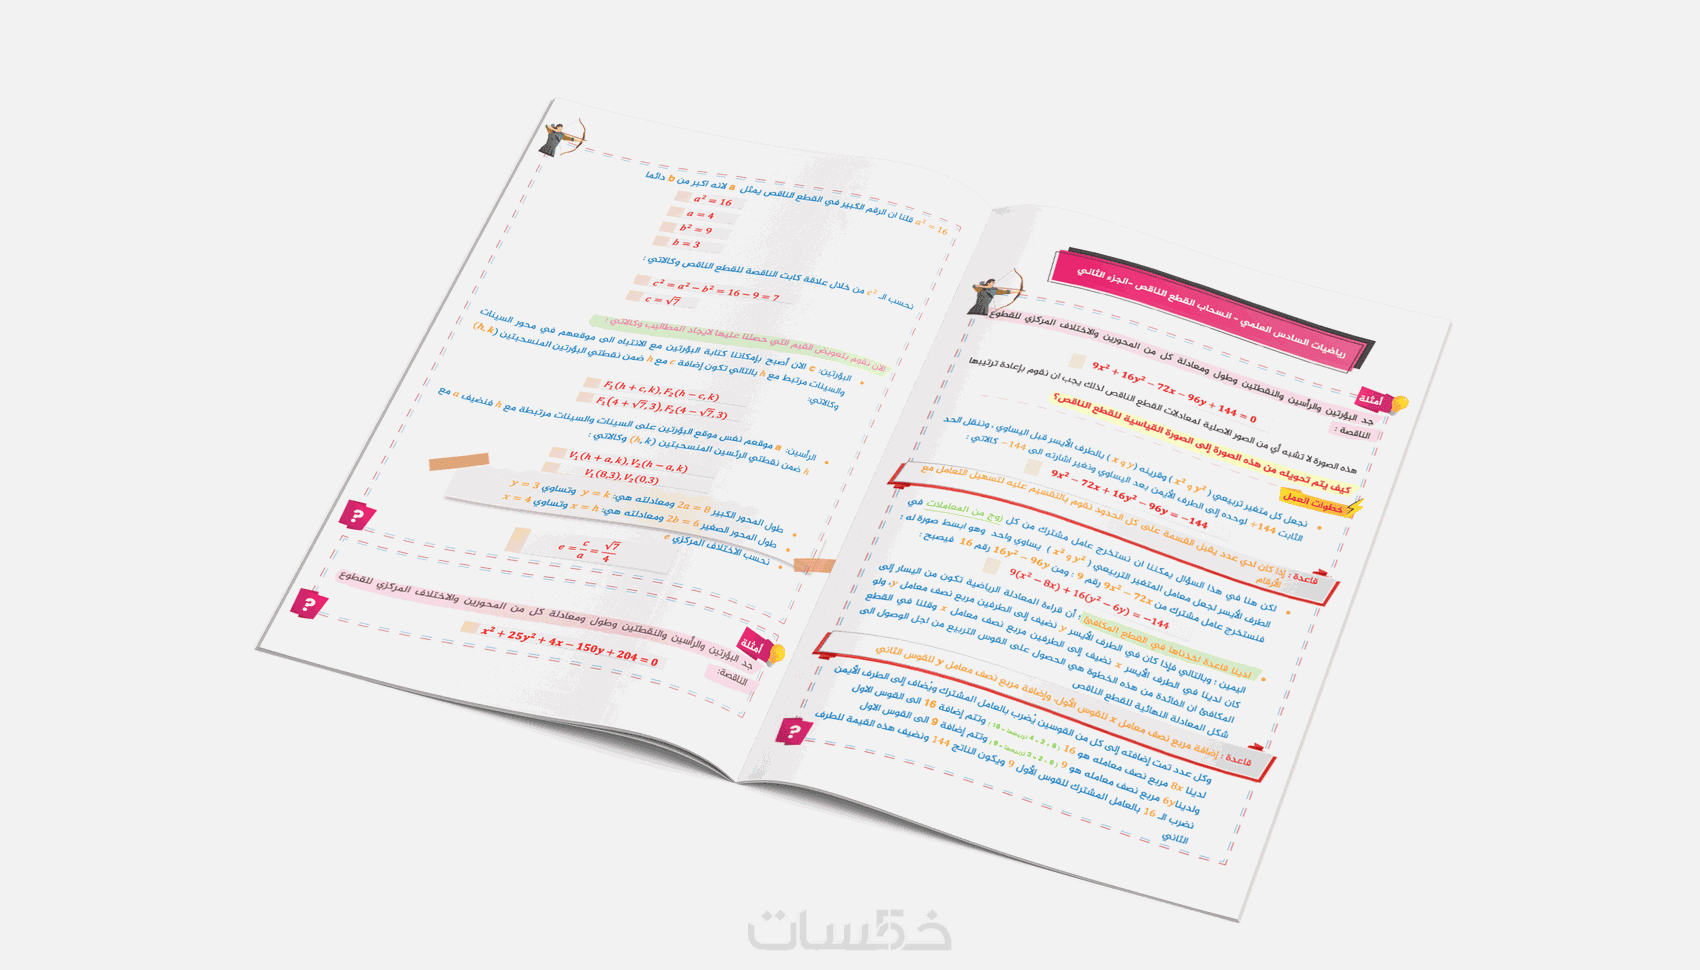 رياضيات السادس العلمي - انسحاب القطع الناقص -الجزء الثاني
أمثلة
جد البؤرتين والرأسين والنقطتين وطول ومعادلة كل من المحورين والاختلاف المركزي للقطوع
الناقصة :
9x² + 16y² − 72x − 96y + 144 = 0
هذه الصورة لا تشبه أي من الصور الاصلية لمعادلات القطع الناقص لذلك يجب ان نقوم بإعادة ترتيبها
كيف يتم تحويله من هذه الصورة إلى الصورة القياسية للقطع الناقص؟
خطوات العمل
نجعل كل متغير تربيعي ( x² و y² ) وقرينه ( x و y ) بالطرف الأيسر قبل اليساوي ، وننقل الحد
الثابت 144+ لوحده إلى الطرف الأيمن بعد اليساوي ونغير اشارته الى 144− كالاتي :
9x² − 72x + 16y² − 96y = −144
قاعدة : إذا كان لدي عدد يقبل القسمة على كل الحدود نقوم بالتقسيم عليه لتسهيل التعامل مع
الأرقام
لكن هنا في هذا السؤال يمكننا ان نستخرج عامل مشترك من كل زوج من المعاملات في
الطرف الأيسر لجعل معامل المتغير التربيعي ( x² و y² ) يساوي واحد وهو ابسط صورة له :
فنستخرج عامل مشترك من 9x² − 72x رقم 9 : ومن 16y² − 96y رقم 16 فيصبح :
9(x² − 8x) + 16(y² − 6y) = −144
لدينا قاعدة اخذناها في القطع المكافئ: أن قراءة المعادلة الرياضية تكون من اليسار إلى
اليمين : وبالتالي فإذا كان في الطرف الأيسر y نضيف إلى الطرفين مربع نصف معامل y، ولو
كان لدينا في الطرف الأيسر x نضيف إلى الطرفين مربع نصف معامل x وقلنا في القطع
المكافئ ان الفائدة من هذه الخطوة هي الحصول على القوس التربيع من اجل الوصول الى
شكل المعادلة النهائية للقطع الناقص
قاعدة : إضافة مربع نصف معامل x للقوس الأول، وإضافة مربع نصف معامل y للقوس الثاني
وكل عدد تمت إضافته إلى كل من القوسين يُضرب بالعامل المشترك ويُضاف إلى الطرف الأيمن
لدينا 8x مربع نصف معامله هو 16 وتتم إضافة 16 الى القوس الاول
ولدينا 6y مربع نصف معامله هو 9 وتتم إضافة 9 الى القوس الاول
نضرب الـ 16 بالعامل المشترك للقوس الأول 9 ويكون الناتج 144 ونضيف هذه القيمة للطرف
الثاني
?
a² = 16 قلنا ان الرقم الكبير في القطع الناقص يمثل a لانه اكبر من b دائما
a² = 16
a = 4
b² = 9
b = 3
نحسب الـ c² من خلال علاقة كابت الناقصة للقطع الناقص وكالاتي :
c² = a² − b² = 16 − 9 = 7
c = √7
الآن نقوم بتعويض القيم التي حصلنا عليها لايجاد المطاليب وكالاتي :
البؤرتين: c الان أصبح بإمكاننا كتابة البؤرتين مع الانتباه الى موقعهم في محور السينات
والسينات مرتبط مع h بالتالي تكون إضافة c مع h ضمن نقطتي البؤرتين المنسحبتين (h, k)
وكالاتي:
F₁(h + c, k), F₂(h − c, k)
F₁(4 + √7, 3), F₂(4 − √7, 3)
الرأسين: a موقعهم نفس موقع البؤرتين على السينات والسينات مرتبطة مع h فنضيف a مع
h ضمن نقطتي الرئسين المنسحبتين (h, k) وكالاتي :
V₁(h + a, k), V₂(h − a, k)
V₁(8,3), V₂(0,3)
طول المحور الكبير 2a = 8 ومعادلته هي: y = k وتساوي y = 3
طول المحور الصغير 2b = 6 ومعادلته هي: x = h وتساوي x = 4
نحسب الاختلاف المركزي e
e = c/a = √7/4
?
أمثلة
جد البؤرتين والرأسين والنقطتين وطول ومعادلة كل من المحورين والاختلاف المركزي للقطوع
الناقصة:
x² + 25y² + 4x − 150y + 204 = 0
?
خمسات